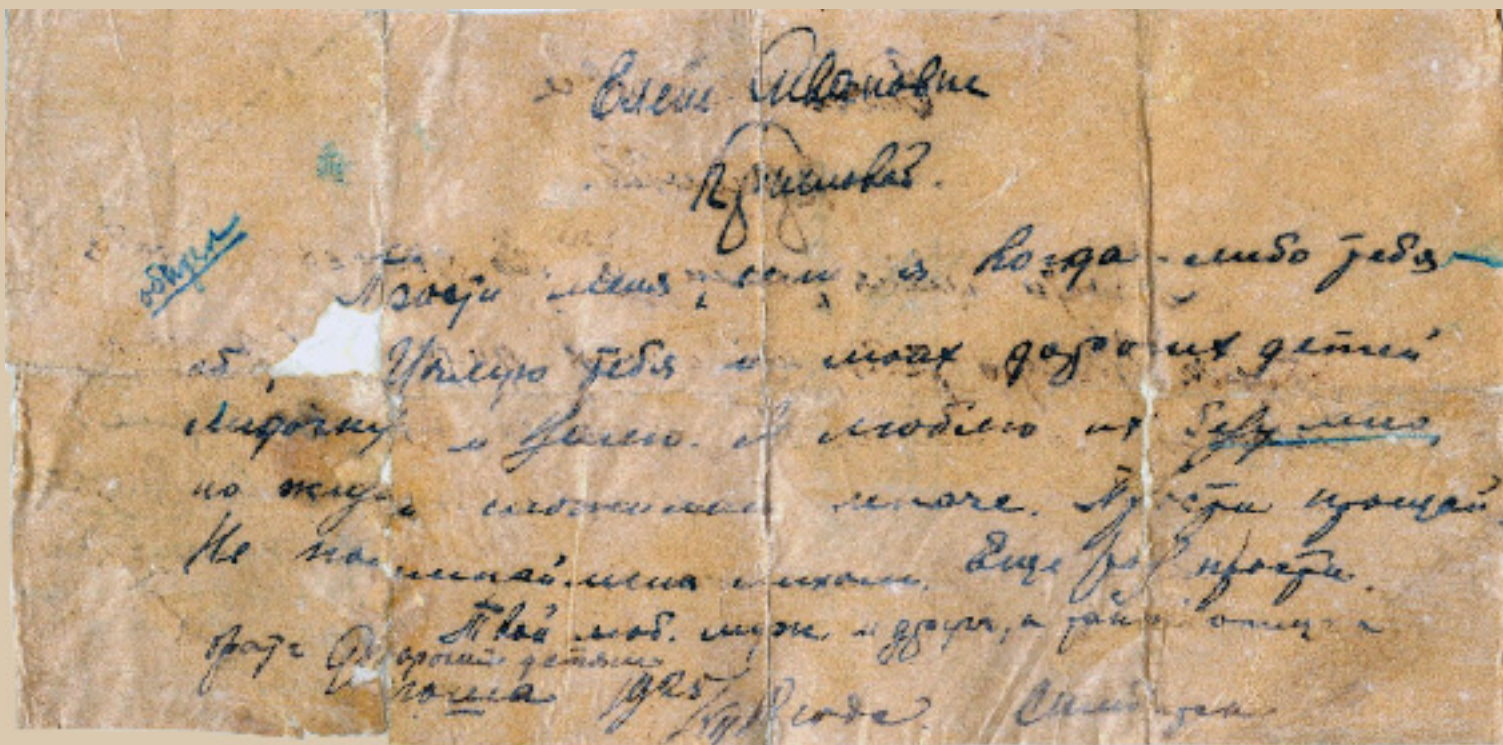 Елене Ивановне
обидел
Прости меня, если я когда-либо тебя
об Целую тебя и моих дорогих детей
Лидочку и Ваню. Я люблю их безумно,
но жизнь сложилась иначе. Прости прощай
Не поминай меня лихом. Еще раз прости.
Твой люб. муж и друг, а также отец и
брат дорогим детям
1925 года.